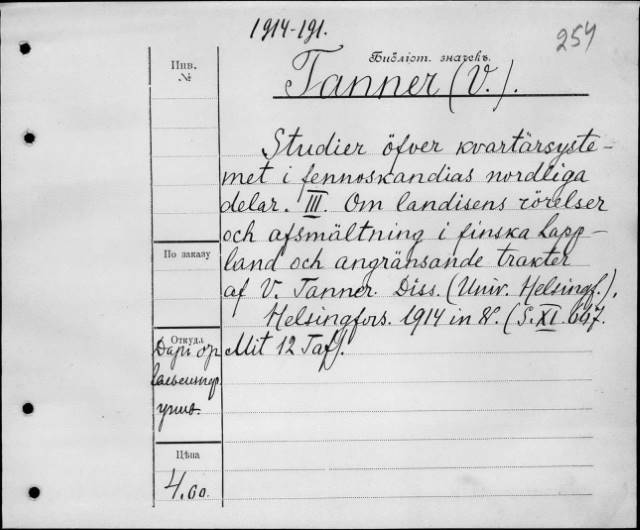 1914-191.
254
Инв.
№
Библіот. значекъ.
Tanner (V.).
Studier öfver kvartärsyste-
met i fennoskandias nordliga
delar. III. Om landisens rörelser
och afsmältning i finska Lapp-
land och angränsande trakter
af V. Tanner. Diss. (Univ. Helsingf.).
Helsingfors. 1914 in 8º. (S. XI. 667.
Mit 12 Taf).
По заказу
Откуда
Даръ
унив.
Цѣна
4.00.